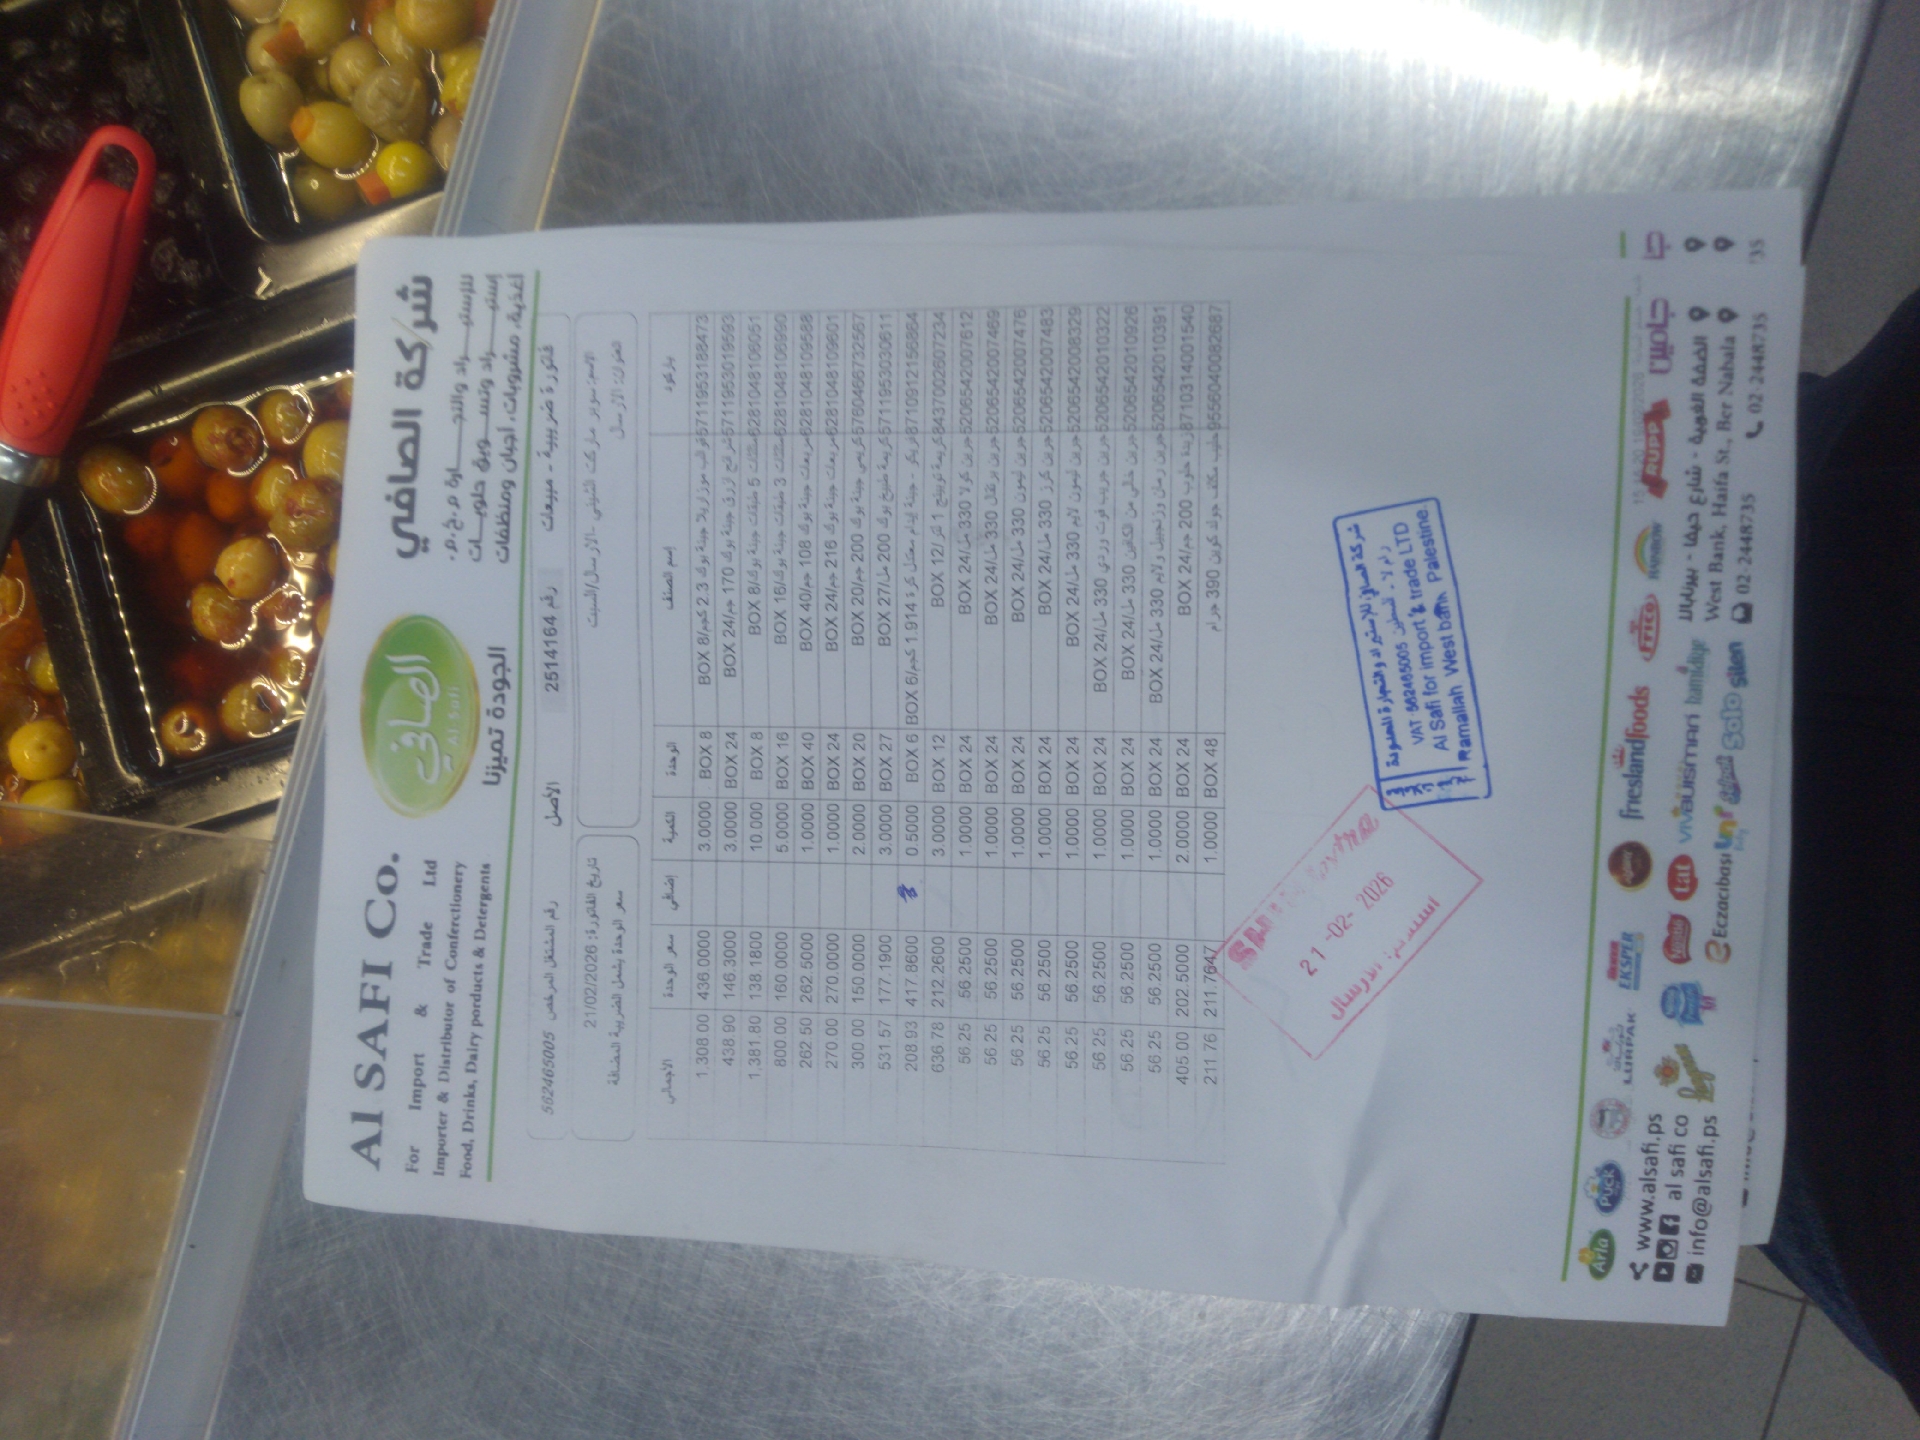 Al SAFI Co.
For Import & Trade Ltd
Importer & Distributor of Conferctionery
Food, Drinks, Dairy porducts & Detergents
الصافي
Al Safi
الجودة تميزنا
شركة الصافي
للإستيـــراد والتجـــارة م.خ.م.
إستيـــراد وتســـويق حلويـــات
أغذية، مشروبات، أجبان ومنظفات
فاتورة ضريبية - مبيعات رقم 2514164 الأصل رقم المشتغل المرخص 562465005
الاسم: سوبر ماركت الشيني -الارسال/السبت
العنوان: الارسال
تاريخ الفاتورة: 21/02/2026
سعر الوحدة يشمل الضريبة المضافة
باركود إسم الصنف الوحدة الكمية إضافي سعر الوحدة الاجمالي
5711953188473 قوالب موزاريلا جبنة بوك 2.3 كجم/BOX 8 BOX 8 3.0000 436.0000 1,308.00
5711953019593 شرائح ازرق جبنة بوك 170 جم/BOX 24 BOX 24 3.0000 146.3000 438.90
6281048106051 مثلثات 5 طبقات جبنة بوك/BOX 8 BOX 8 10.000 138.1800 1,381.80
6281048106990 مثلثات 3 طبقات جبنة بوك/BOX 16 BOX 16 5.0000 160.0000 800.00
6281048109588 مربعات جبنة بوك 108 جم/BOX 40 BOX 40 1.0000 262.5000 262.50
6281048109601 مربعات جبنة بوك 216 جم/BOX 24 BOX 24 1.0000 270.0000 270.00
5760466732567 كريمي جبنة بوك 200 جم/BOX 20 BOX 20 2.0000 150.0000 300.00
5711953030611 كريمة طبخ بوك 200 مل/BOX 27 BOX 27 3.0000 177.1900 531.57
8710912156864 فريكو - جبنة ايدام معتدل كرة 1.914 كجم/BOX 6 BOX 6 0.5000 417.8600 208.93
8437002607234 كريمة توبينج 1 لتر/BOX 12 BOX 12 3.0000 212.2600 636.78
5206542007612 جرين كولا 330 مل/BOX 24 BOX 24 1.0000 56.2500 56.25
5206542007469 جرين برتقال 330 مل/BOX 24 BOX 24 1.0000 56.2500 56.25
5206542007476 جرين ليمون 330 مل/BOX 24 BOX 24 1.0000 56.2500 56.25
5206542007483 جرين كرز 330 مل/BOX 24 BOX 24 1.0000 56.2500 56.25
5206542008329 جرين ليمون لايم 330 مل/BOX 24 BOX 24 1.0000 56.2500 56.25
5206542010322 جرين جريب فوت وردي 330 مل/BOX 24 BOX 24 1.0000 56.2500 56.25
5206542010926 جرين خالي من الكافين 330 مل/BOX 24 BOX 24 1.0000 56.2500 56.25
5206542010391 جرين رمان وزنجبيل ولايم 330 مل/BOX 24 BOX 24 1.0000 56.2500 56.25
8710314001540 زبدة حلوب 200 جم/BOX 24 BOX 24 2.0000 202.5000 405.00
9556040082687 حليب مكثف جولد كوين 390 جرام BOX 48 1.0000 211.7647 211.76
21-02-2026
استلام: الارسال
شركة الصافي للإستيراد والتجارة المحدودة
رام لله - فلسطين
VAT: 562465005
Al Safi for import & trade LTD
Ramallah West bank Palestine.
Arla PUCK LURPAK EKSPER frieslandfoods FRICO RAINBOW RUPP جاسمين
tat vivalismari hamidiye
Eczacıbaşı Solo silen
www.alsafi.ps
al safi co
info@alsafi.ps
الضفة الغربية - شارع حيفا - بيرنبالا
West Bank, Haifa St., Ber Nabala
02-2448735 02-2448735
35